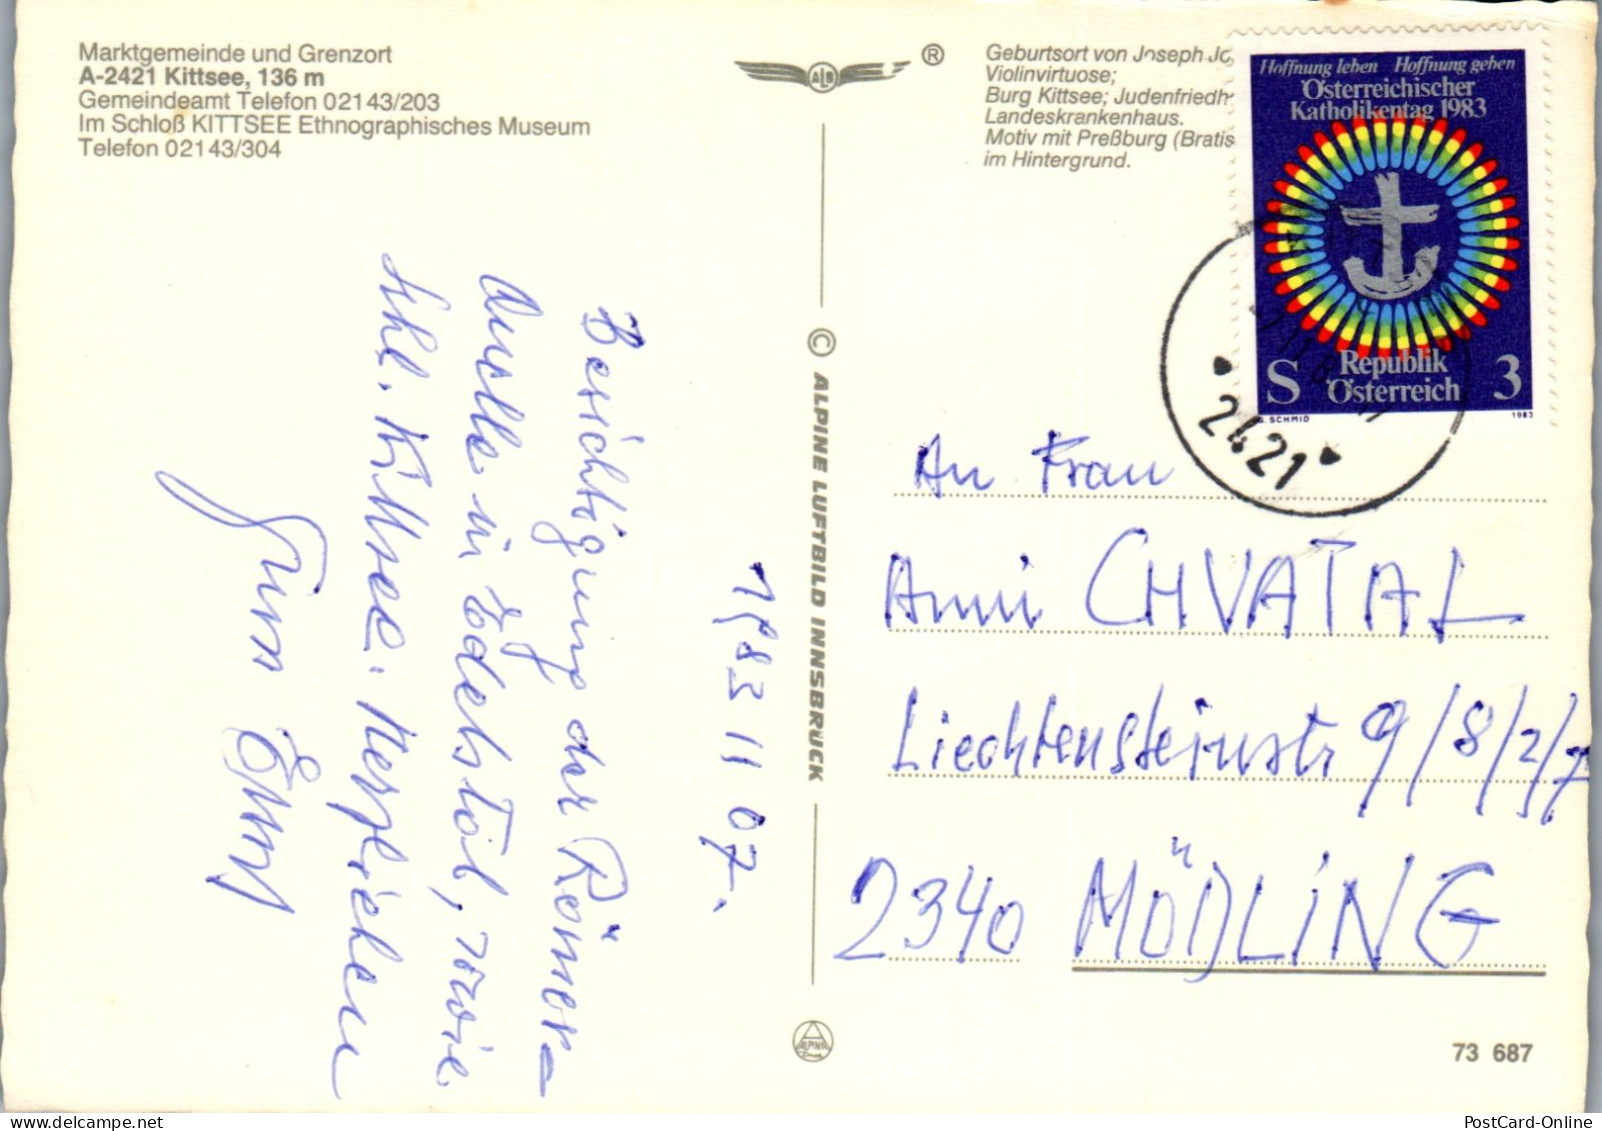 Marktgemeinde und Grenzort
A-2421 Kittsee, 136 m
Gemeindeamt Telefon 02143/203
Im Schloß KITTSEE Ethnographisches Museum
Telefon 02143/304
ALB
®
Geburtsort von Joseph Jo
Violinvirtuose;
Burg Kittsee; Judenfriedh
Landeskrankenhaus.
Motiv mit Preßburg (Bratis
im Hintergrund.
Hoffnung leben Hoffnung geben
Österreichischer
Katholikentag 1983
S Republik 3
Österreich
SCHMID 1983
2421
1983 11 07.
Besichtigung der Römer=
quelle in Edelstal, sowie
Schl. Kittsee. Herzlichen
Gruss Ernst
© ALPINE LUFTBILD INNSBRUCK
An Frau
Anni CHVATAL
Liechtensteinstr 9/8/2/7
2340 MÖDLING
ALPINE
73 687
PostCard-Online